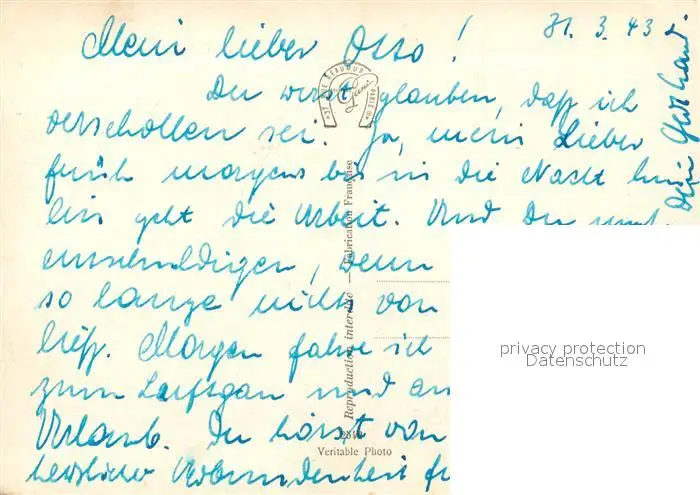 31. 3. 43
Mein lieber Otto!
Du wirst glauben, daß ich
verschollen sei. Ja, mein Lieber
früh morgens bis in die Nacht hin
ein geht die Arbeit. Und Du mußt
entschuldigen, wenn
so lange nichts von
ließ. Morgen fahre ich
zum Luftgau und an
Urlaub. Du hörst von
herzlicher Verbundenheit
Dein Gerhard
37 RUE REAUMUR
PARIS
Reproduction interdite — Fabrication Française
Veritable Photo
privacy protection
Datenschutz